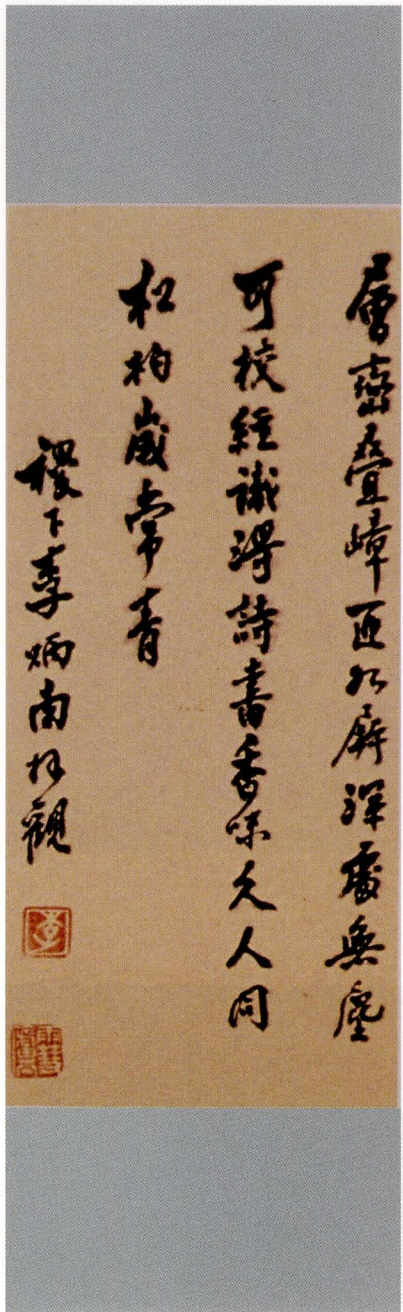 層巒疊嶂匝如屏深處無塵
可校經識得詩書香味久人同
松柏歲常青
稷下李炳南拜觀